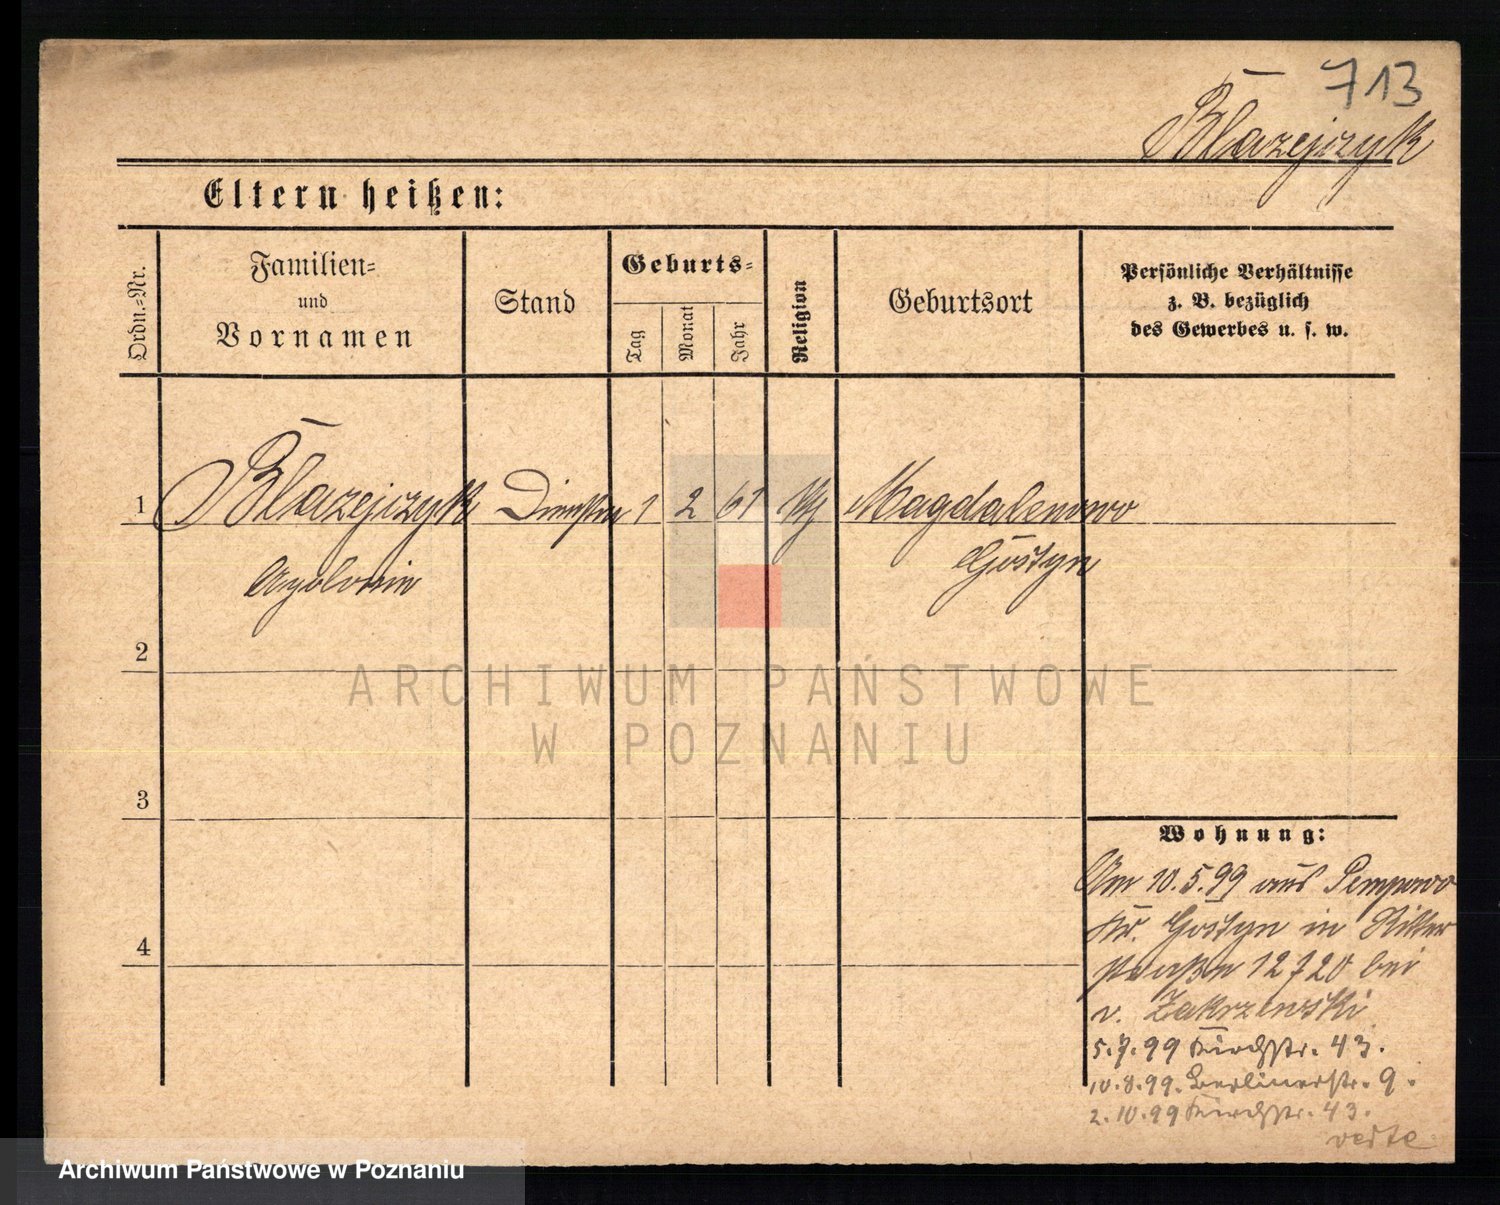 713
Błazejczyk
Eltern heißen:
Ordn.-Nr.
Familien-
und
Vornamen
Stand
Geburts-
Tag
Monat
Jahr
Religion
Geburtsort
Persönliche Verhältnisse
z. B. bezüglich
des Gewerbes u. s. w.
1
Błazejczyk
1 2 61
Magdalenowo
Gostyn
2
3
4
ARCHIWUM PAŃSTWOWE
W POZNANIU
Wohnung:
Am 10.5.99 aus Pempowo
Kr. Gostyn in Ritter
straße bei
v. Zakrzewski
5.7.99 Kirchstr. 43.
10.8.99. Berlinerstr. 9.
2.10.99 Kirchstr. 43.
verte
Archiwum Państwowe w Poznaniu